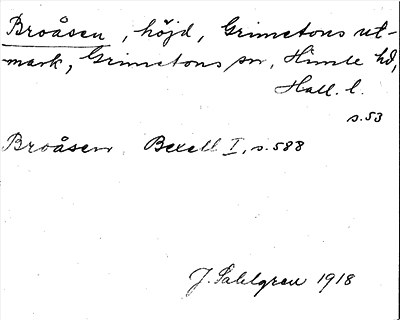 Broåsen, höjd, Grimetons ut-
mark, Grimetons sn, Himle hd,
Hall. l.
s. 53
Broåsen Bexell I, s. 588
J. Sahlgren 1918